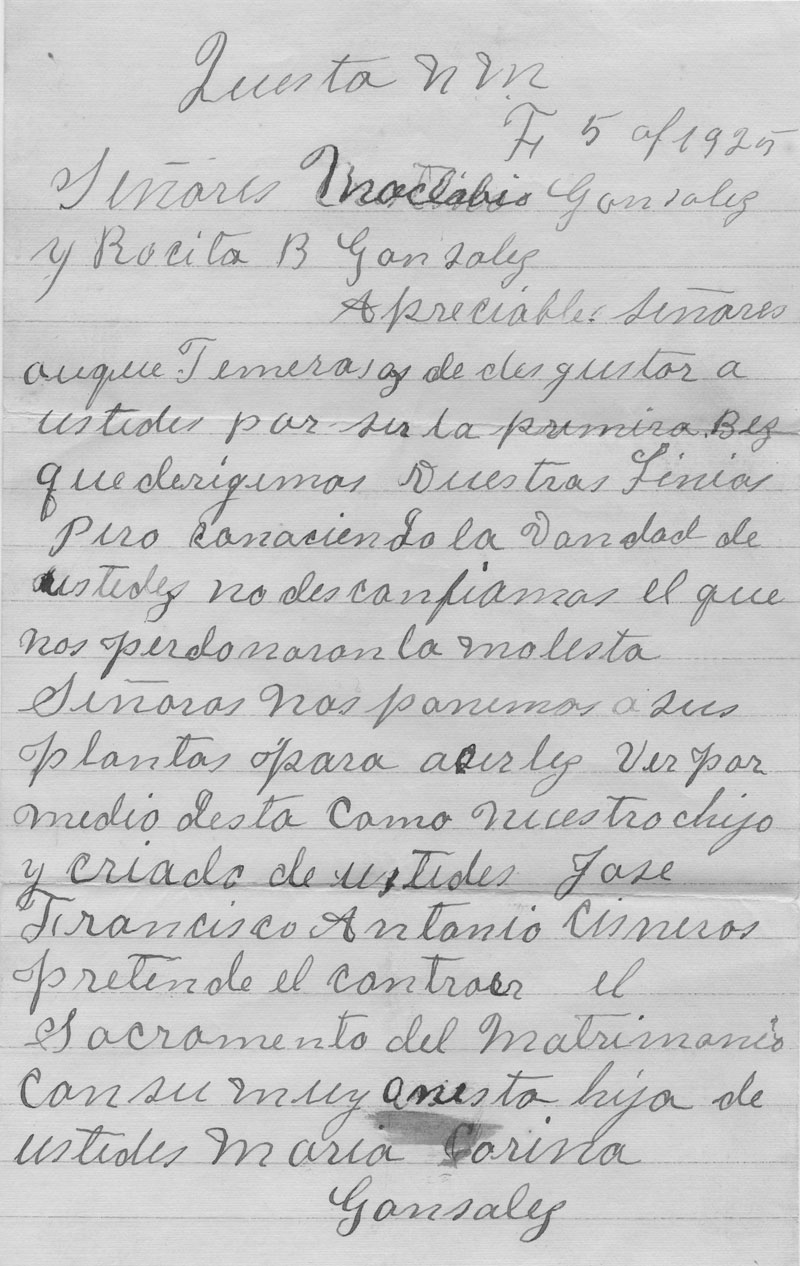 Questa N M.
F 5 of 1925
Señores Gonzalez
y Rocita B Gonsalez
Apreciable señores
auque Temerasos de desgustar a
ustedes por ser la primira Bez
que derigemos Nuestras Linias
Pero conaciendo la Vondad de
ustedez no desconfiamos el que
nos perdonaran la molesta
Señoras nos ponemos a sus
plantas para aserlez Ver por
medio desta Como nuestro hijo
y criado de ustedes Jose
Francisco Antonio Cisneros
pretende el contraer el
Sacramento del Matrimonio
Con su muy onesta hija de
ustedes Maria Corina
Gonsalez